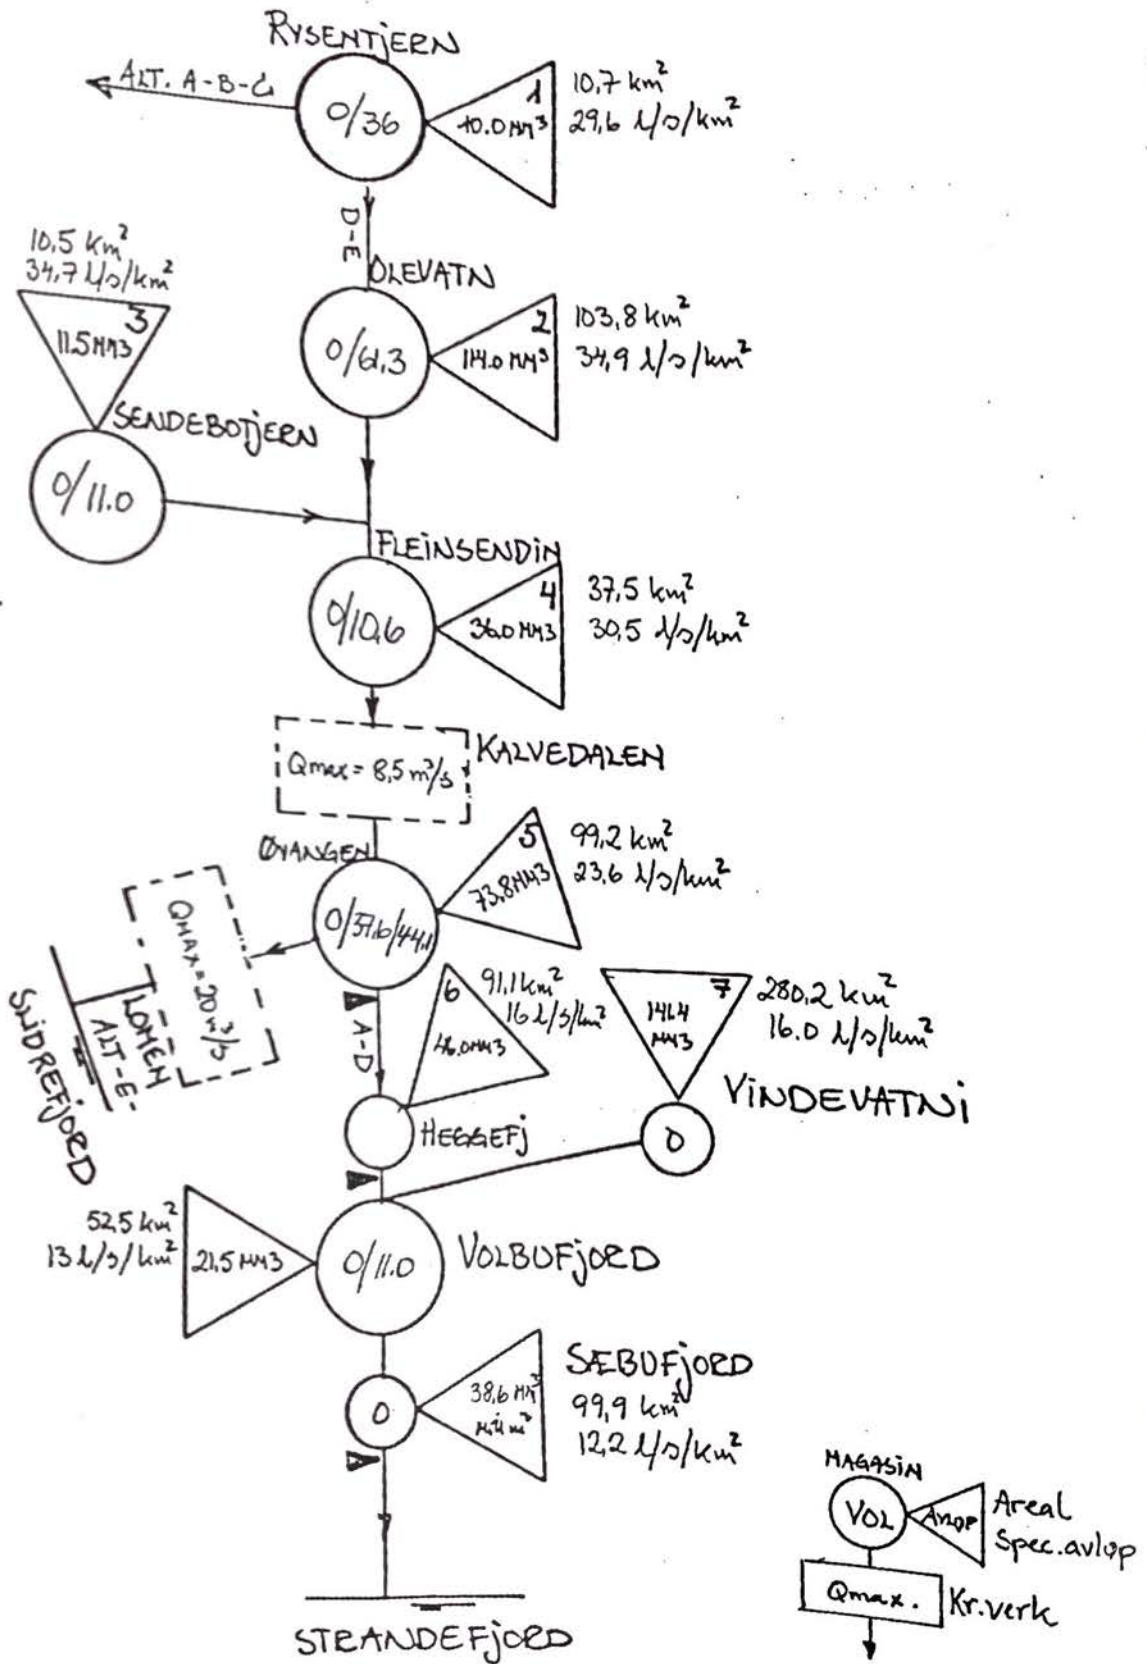 RYSENTJERN
ALT. A-B-C
0/36
1
10.0 MM³
10,7 km²
29,6 l/s/km²
D-E
10,5 km²
34,7 l/s/km²
3
11.5 MM3
OLEVATN
0/61,3
2
114.0 MM³
103,8 km²
34,9 l/s/km²
SENDEBOTJERN
0/11.0
FLEINSENDIN
0/10,6
4
36.0 MM3
37,5 km²
30,5 l/s/km²
Qmax = 8,5 m³/s
KALVEDALEN
ØYANGEN
0/37,6/44,1
5
73,8 MM3
99,2 km²
23,6 l/s/km²
QMAX = 20 m³/s
LOMEN
ALT-E-
SLIDREFJORD
A-D
6
46.0 MM3
91,1 km²
16 l/s/km²
7
141.4
MM3
280,2 km²
16.0 l/s/km²
VINDEVATNI
0
HEGGEFJ
52,5 km²
13 l/s/km²
21,5 MM3
0/11.0
VOLBUFJORD
0
38,6 MM³
SÆBUFJORD
99,9 km²
12,2 l/s/km²
STRANDEFJORD
MAGASIN
VOL
Avløp
Areal
Spec.avløp
Qmax.
Kr.verk